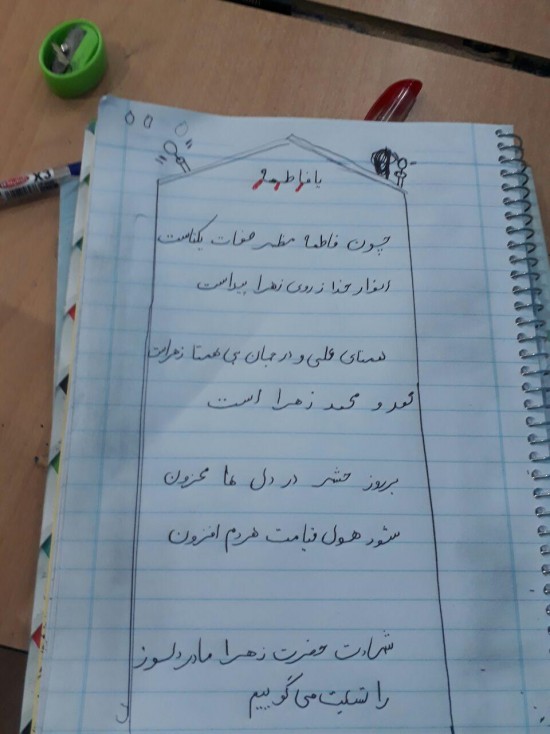 یا فاطمه
چون فاطمه مظهر صفات یکتاست
انوار خدا ز روی زهرا پیداست
همتای علی و در جهان بی همتا زهراست
محمد زهرا است
بروز حشر در دل ها محزون
شود هول قیامت هردم افزون
شهادت حضرت زهرا مادر دلسوز
را تسلیت می گوییم